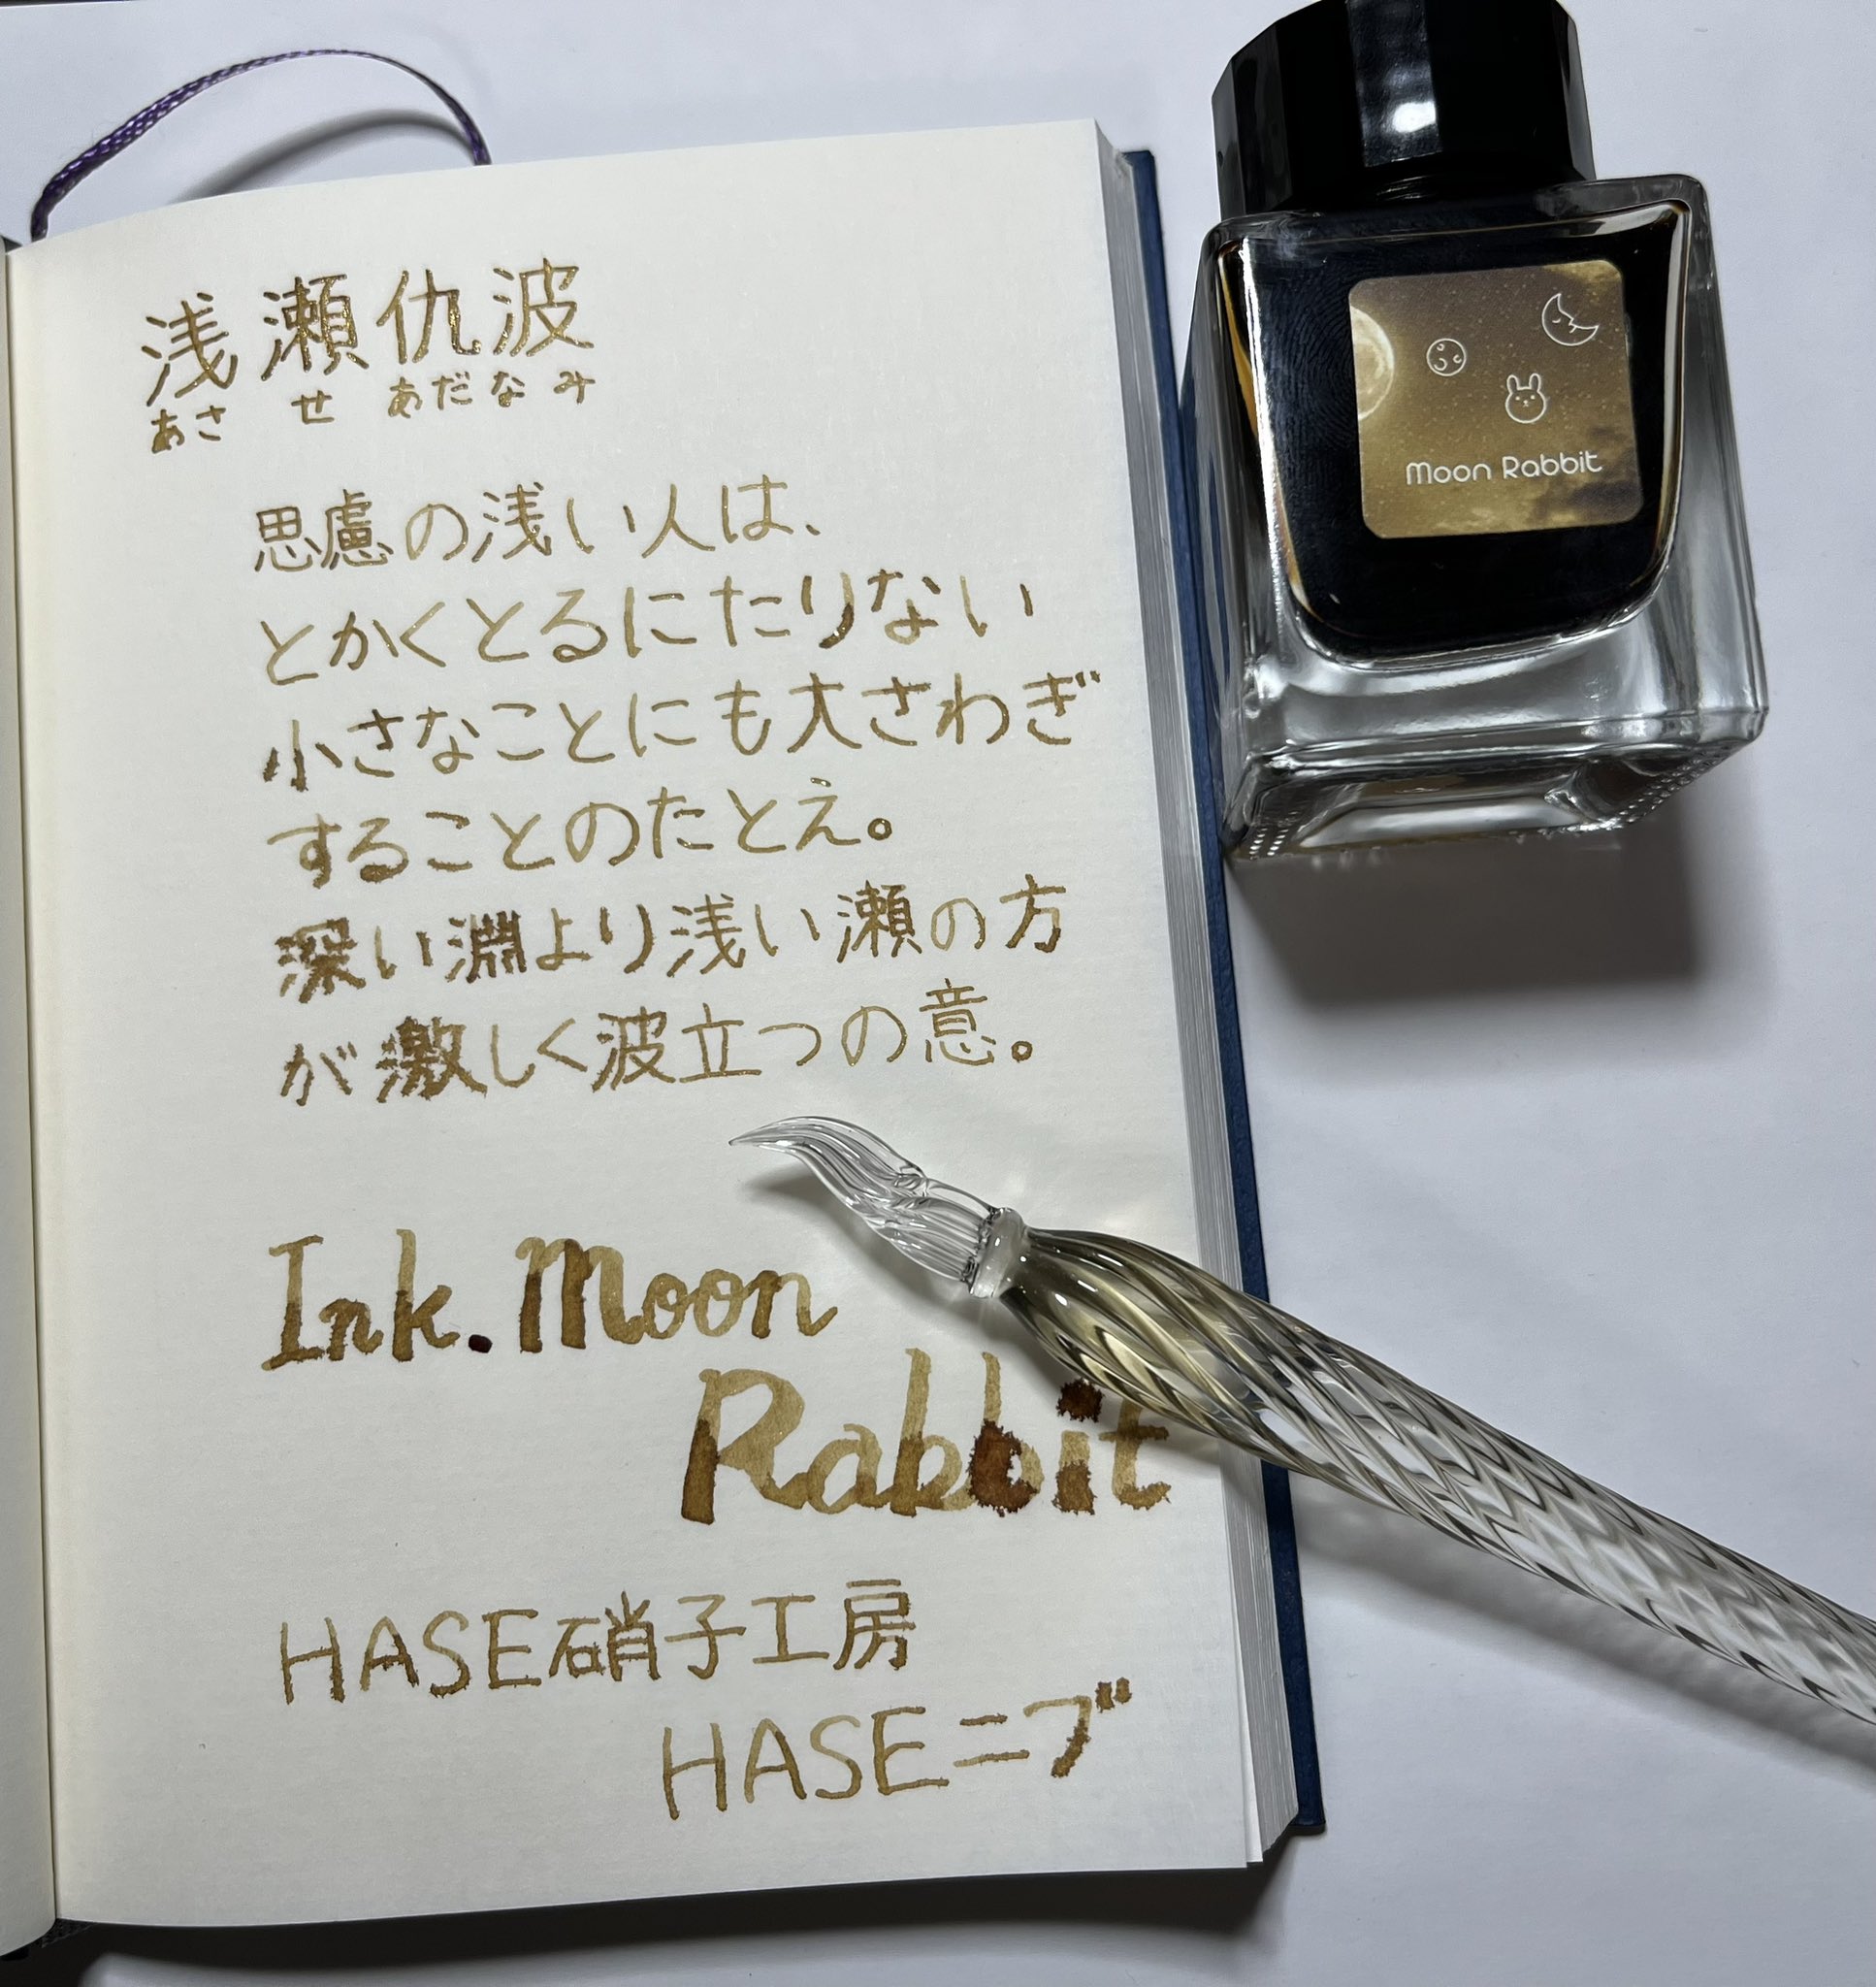 浅瀬仇波
あさ せ あだなみ
思慮の浅い人は、
とかくとるにたりない
小さなことにも大さわぎ
することのたとえ。
深い淵より浅い瀬の方
が激しく波立つの意。
Ink. Moon
Rabbit
HASE硝子工房
HASEニブ
Moon Rabbit